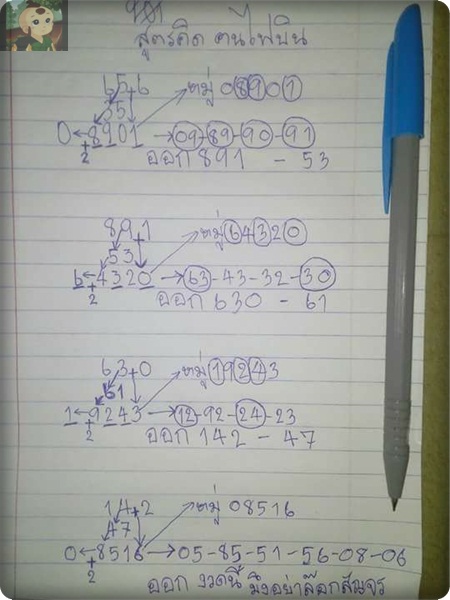 สูตรคิด คนไฟบิน
65+6 หมู่ 08901
55
0←8901→09-89-90-91
+2
ออก 891 - 53
89+1 หมู่ 64320
53
6←4320→63-43-32-30
+2
ออก 630 - 61
63+0 หมู่ 19243
61
1←9243→12-92-24-23
+2
ออก 142 - 47
14+2 หมู่ 08516
47
0←8516→05-85-51-56-08-06
+2
ออก งวดนี้ มึงอย่าล๊อกสัญจร